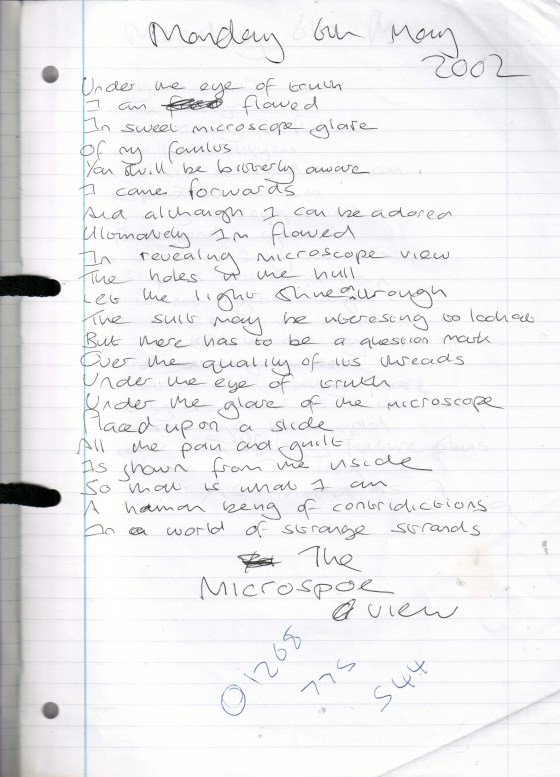 Monday 6th May
2002
Under the eye of truth
I am flawed
In sweet microscope glare
Of my faults
You will be bitterly aware
I came forwards
And although I can be adored
Ultimately Im flawed
In revealing microscope view
The holes in the hull
Let the light shine through
The suit may be interesting to look at
But there has to be a question mark
Over the quality of its threads
Under the eye of truth
Under the glare of the microscope
Placed upon a slide
All the pain and guilt
Is shown from the inside
So that is what I am
A human being of contridictions
In a world of strange strands
The
Microspoe
view
01268
775
544